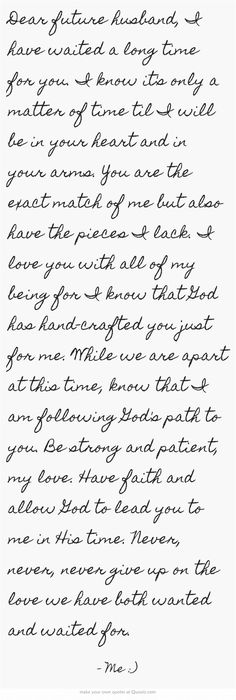 Dear future husband, I
have waited a long time
for you. I know it's only a
matter of time til I will
be in your heart and in
your arms. You are the
exact match of me but also
have the pieces I lack. I
love you with all of my
being for I know that God
has hand-crafted you just
for me. While we are apart
at this time, know that I
am following God's path to
you. Be strong and patient,
my love. Have faith and
allow God to lead you to
me in His time. Never,
never, never give up on the
love we have both wanted
and waited for.
- Me :)
make your own quotes at Quozio.com